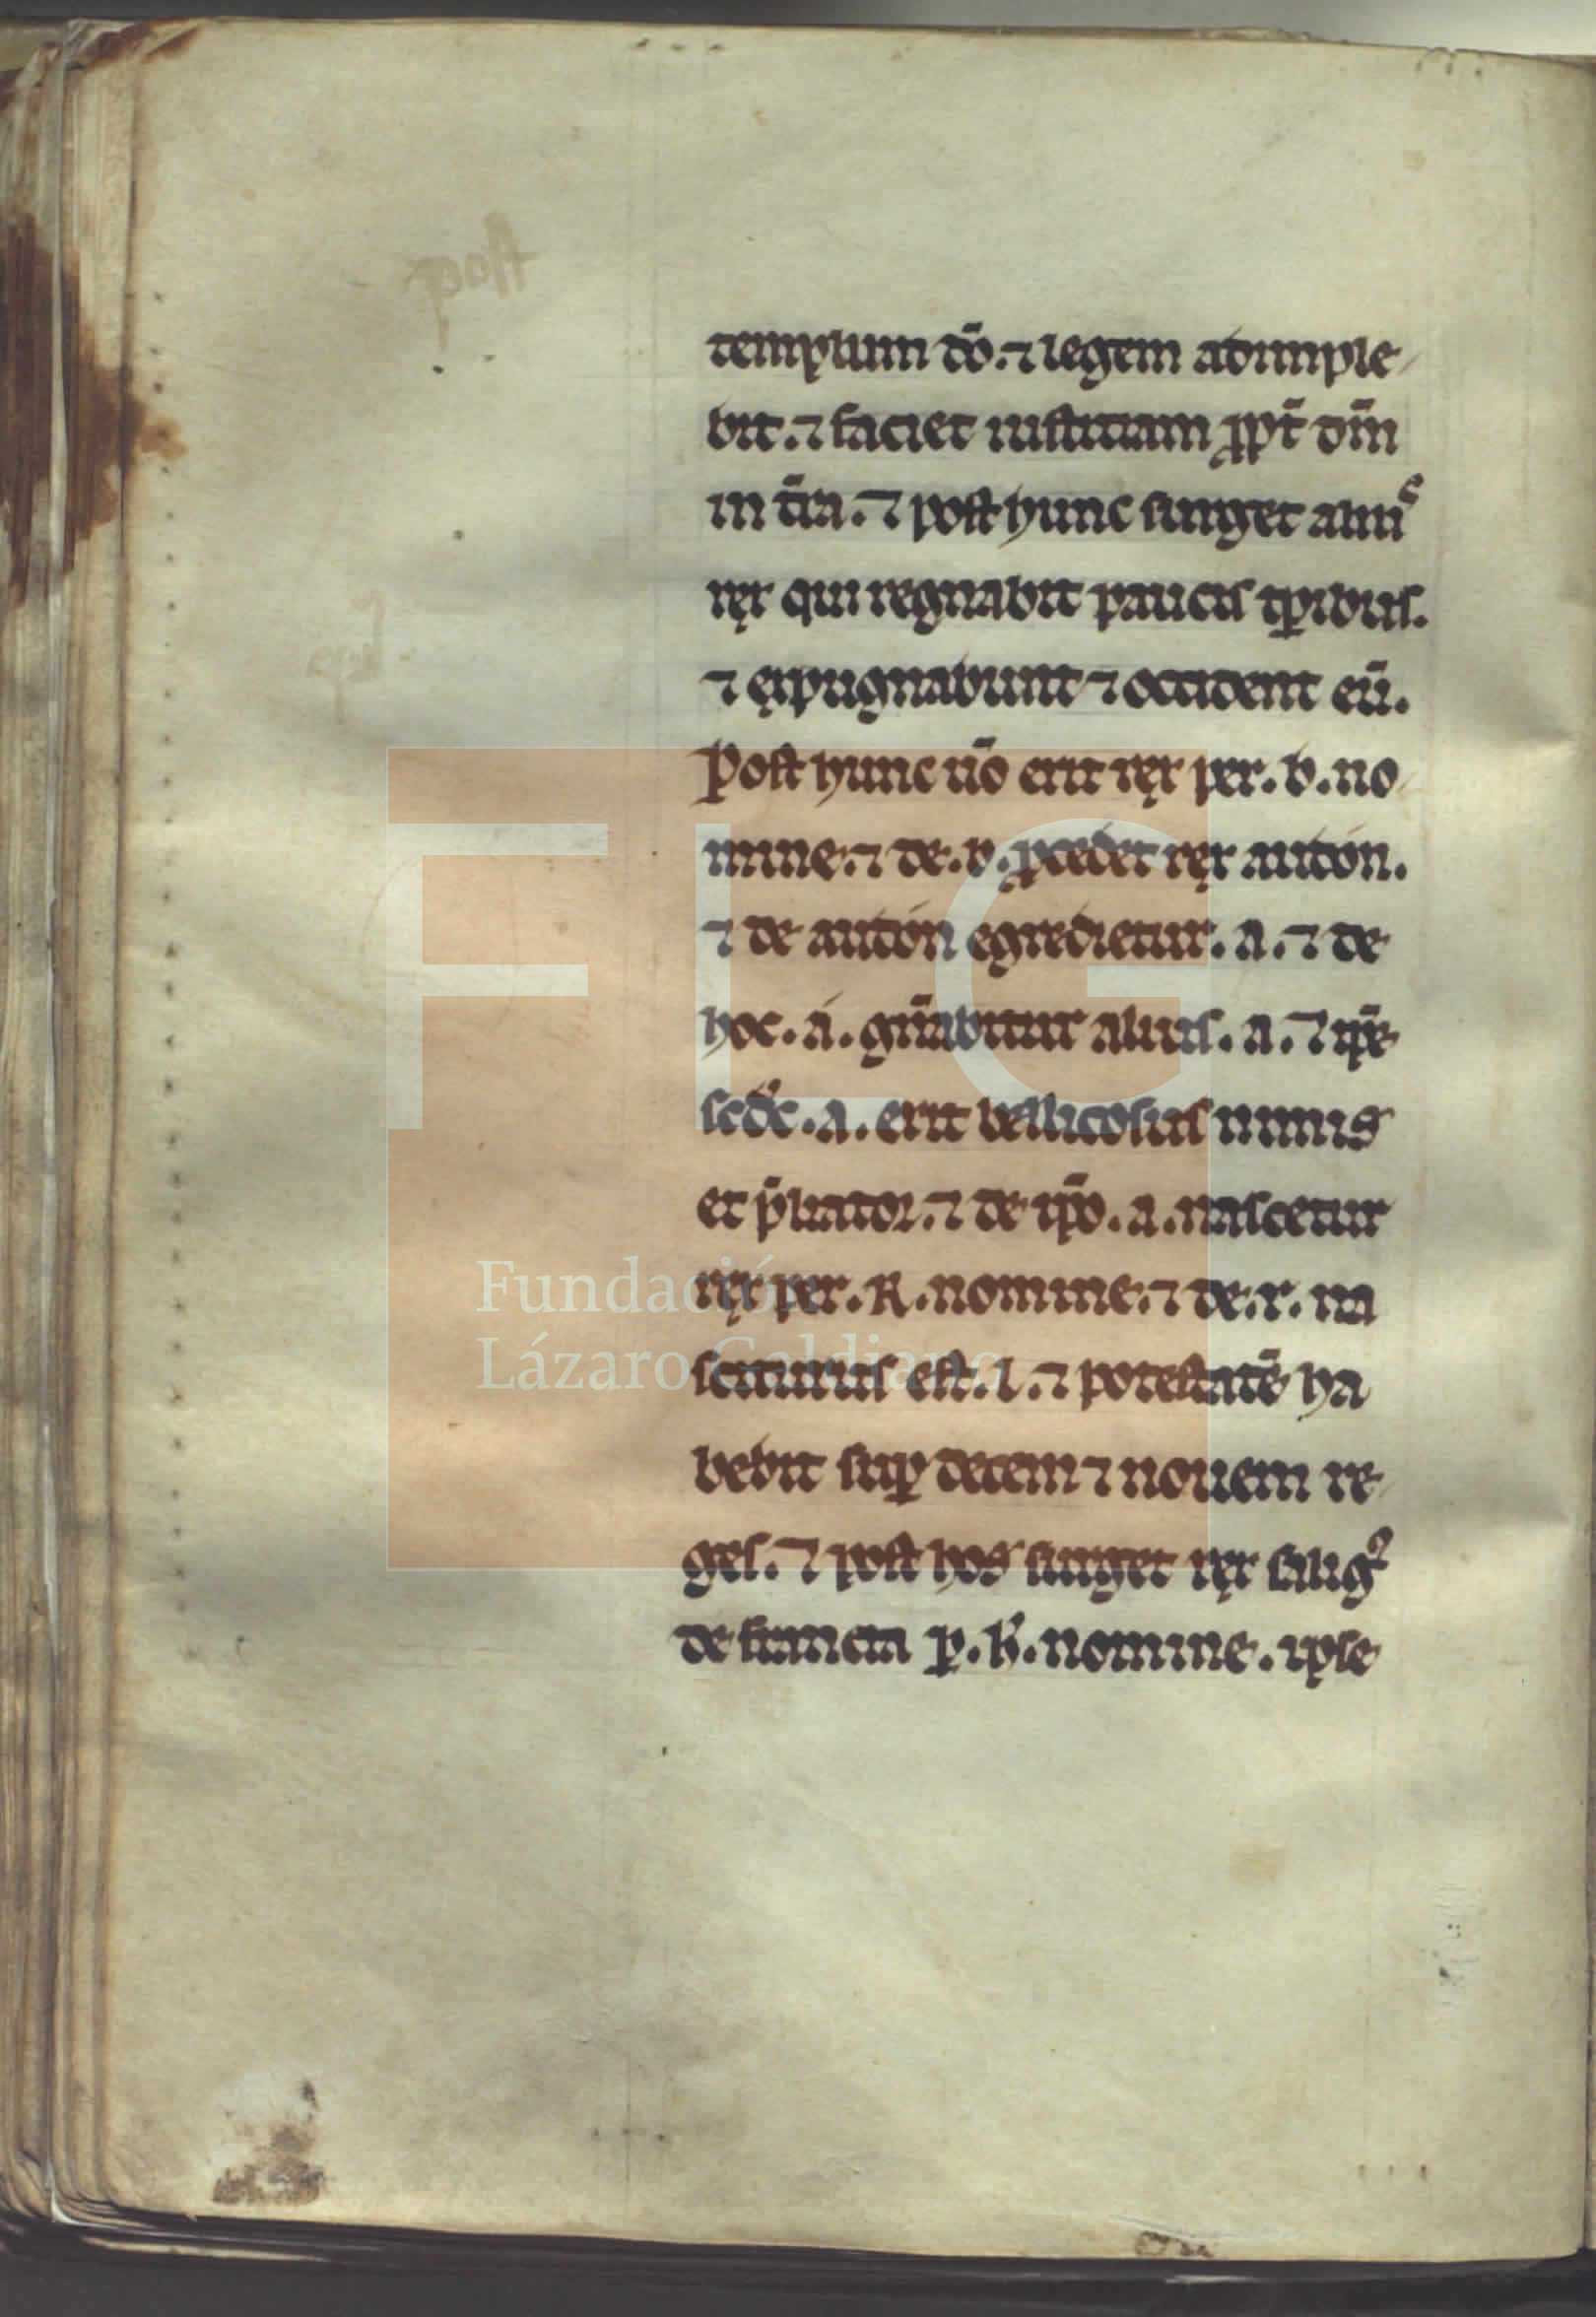 templum dō. ⁊ legem adimple
bit. ⁊ faciet iustitiam ꝓpt̄ dm̄
in t̄ra. ⁊ post hunc surget alius
rex qui regnabit paucis tꝑibus.
⁊ expugnabunt ⁊ occident eū.
Post hunc ūo erit rex per. b. no
mine. ⁊ de. b. ꝓcedet rex audon.
⁊ de audon egredietur. a. ⁊ de
hoc. a. gn̄abitur alius. a. ⁊ ip̄e
scds. a. erit bellicosus nimis
et p̄liator. ⁊ de ip̄o. a. nascetur
rex per. R. nomine. ⁊ de. r. na
sciturus est. l. ⁊ potestatē ha
bebit suꝑ decem ⁊ nouem re
ges. ⁊ post hos surget rex salig
de francia ꝑ. b. nomine. ipse
FLG
Fundación
Lázaro Galdiano